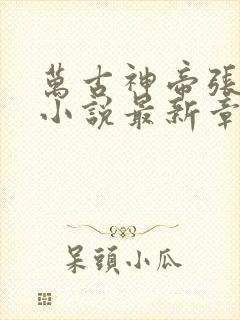 萬古神帝張
小說最新章
呆頭小瓜